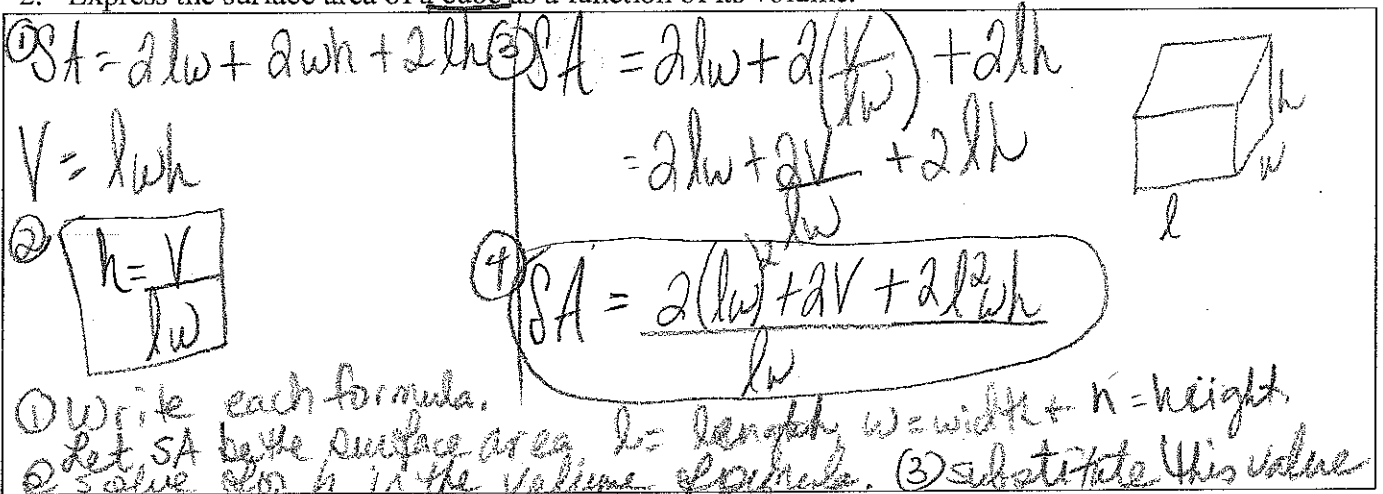 2. Express the surface area of a cube as a function of its volume.
① SA = 2lw + 2wh + 2lh
V = lwh
② h = V/lw
③ SA = 2lw + 2(V/lw) + 2lh
= 2lw + 2V/lw + 2lh
④ SA = (2(lw)² + 2V + 2l²wh)/lw
h
w
l
① Write each formula.
Let SA be the surface area, l = length, w = width + h = height.
② Solve for h in the volume formula. ③ substitute this value